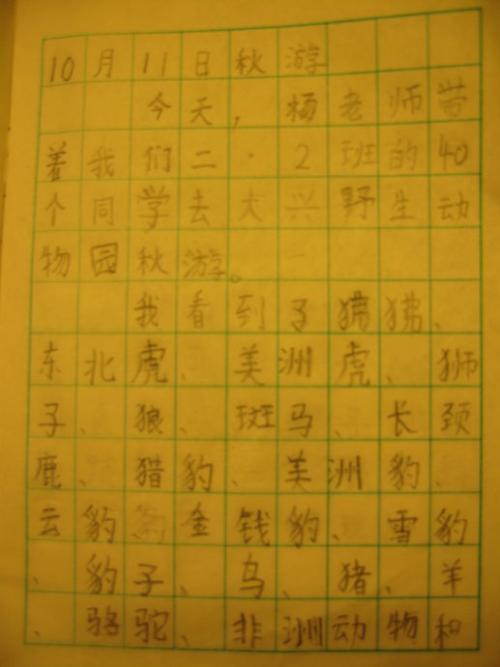 10月11日秋游
今天,杨老师带
着我们二·2班的40
个同学去大兴野生动
物园秋游。
我看到了狒狒、
东北虎、美洲虎、狮
子、狼、斑马、长颈
鹿、猎豹、美洲豹、
云豹、金钱豹、雪豹
、豹子、鸟、猪、羊
、骆驼、非洲动物和